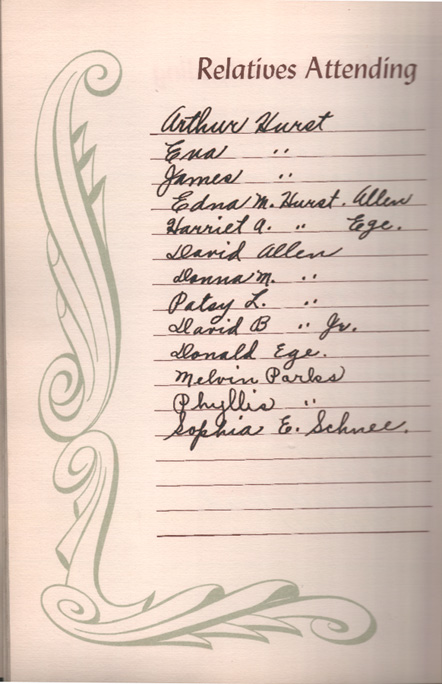 Relatives Attending
Arthur Hurst
Eva "
James "
Edna M. Hurst. Allen
Harriet A. " Ege.
David Allen
Donna M. "
Patsy L. "
David B " Jr.
Donald Ege.
Melvin Parks
Phyllis "
Sophia E. Schnee.